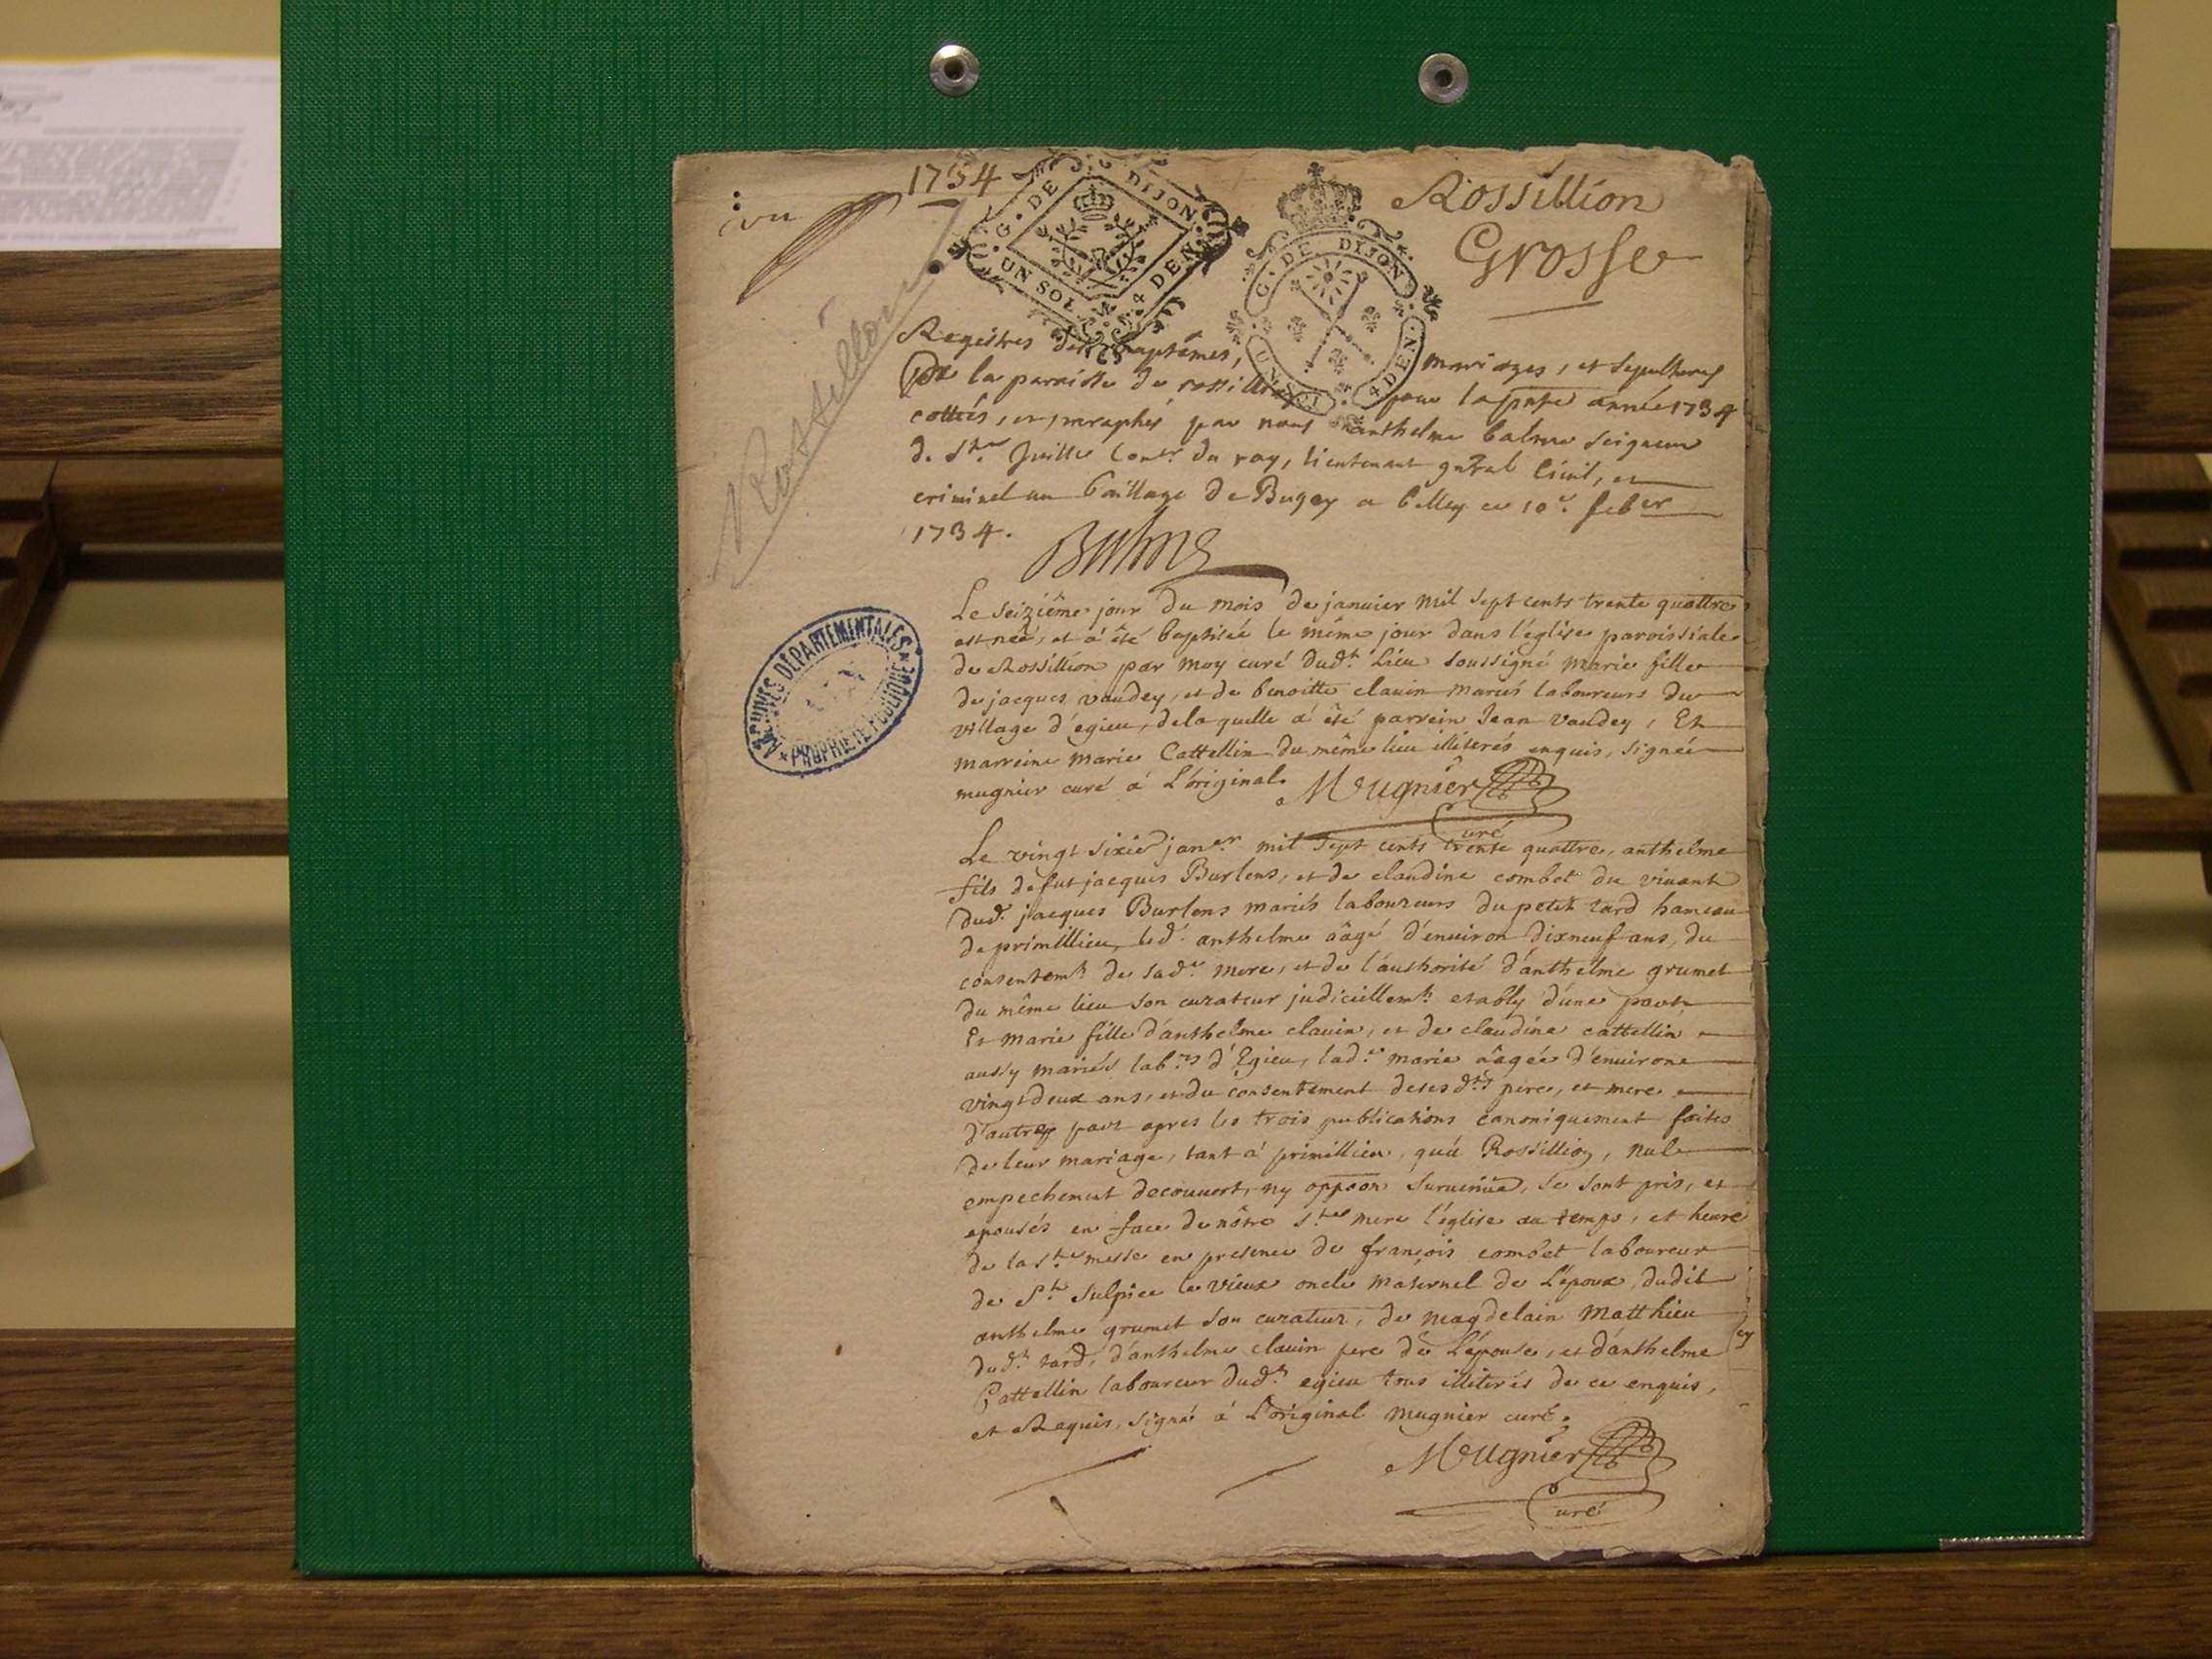 1734
vu
G. DE DIJON
UN SOL. 4 DEN.
G. DE DIJON
UN SOL. 4 DEN.
Rossillion
Grosse
Rossillon
Registres des baptêmes, mariages, et sepultures
De la paroisse de rossillon pour la pnte année 1734
cottés, et paraphés par nous anthelme balme seigneur
de Ste Juille Conser du roy, lieutenant gnral Civil, et
criminel au baillage de Bugey a belley ce 10e feber
1734.
Balme
Le seiziême jour du mois de januier mil sept cents trente quattre
est neé, et a êté baptisée le même jour dans l'église paroissiale
de Rossillion par moy curé dudt Lieu soussigné marie fille
de jacques vaudey, et de benoitte clauin mariés laboureurs du
village d'egieu, de la quelle a êté parrein Jean vaudey, Et
marreine marie Cattellin du même lieu illiterés enquis, signé
mugnier curé à L'original. Meugnier
curé
Le vingt sixie janer mil sept cents trente quattre, anthelme
fils de fut jacques Burlens, et de claudine combet du viuant
dudt jacques Burlens mariés laboureurs du petit tard hameau
de primillieu, led. anthelme âagé d'enuiron dixneuf ans, du
consentemt de sade mere, et de l'authorité d'anthelme grumet
du même lieu son curateur judiciellemt etably d'une part,
Et marie fille d'anthelme clauin, et de claudine cattellin
aussy mariés labrs d'Egieu, lade marie âagée d'enuiron
vingt deux ans, et du consentement de ses dts pere, et mere
d'autre part apres les trois publications canoniquement faites
de leur mariage, tant à primillieu, qu'à Rossillion, nul
empechement decouuert, ny oppoon suruenüe, se sont pris, et
epousés en face de nôtre Ste mere l'église au temps, et heure
de la Ste messe en presence de françois combet laboureur
de St Sulpice le vieux oncle maternel de L'époux, dudit
anthelme grumet son curateur, de magdelain Matthieu
dudt tard, d'anthelme clauin pere de L'épouse, et d'anthelme
Cattellin laboureur dudt egieu tous illiterés de ce enquis,
et Requis, signé à L'original mugnier curé.
Meugnier
curé
ARCHIVES DÉPARTEMENTALES
PROPRIÉTÉ PUBLIQUE